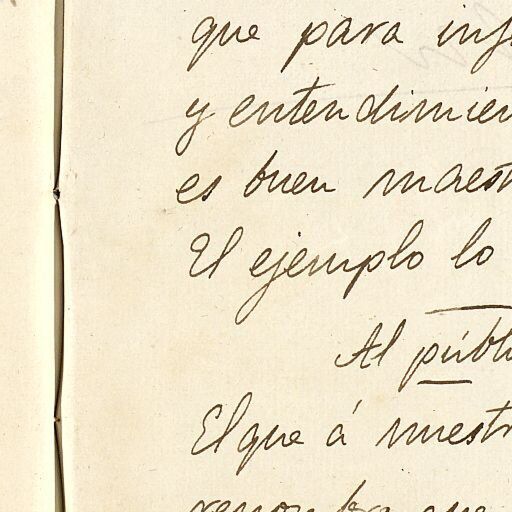 que para inf
y entendimien
es buen maest
El ejemplo lo
Al públi
El que á nuestr
que